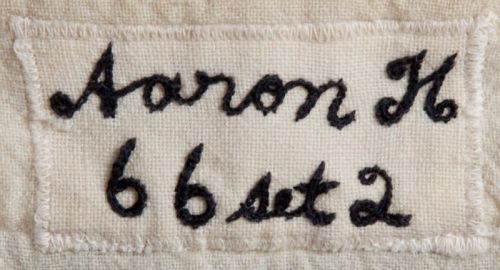 Aaron H
66 set 2